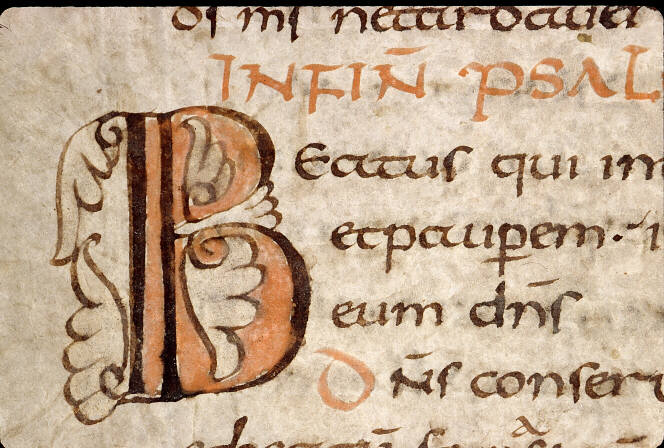 ds ms netardaueri
IN FIN̄ PSAL
BEatus qui in
et paup̱erem · i
eum dn̄s
DN̄s conser